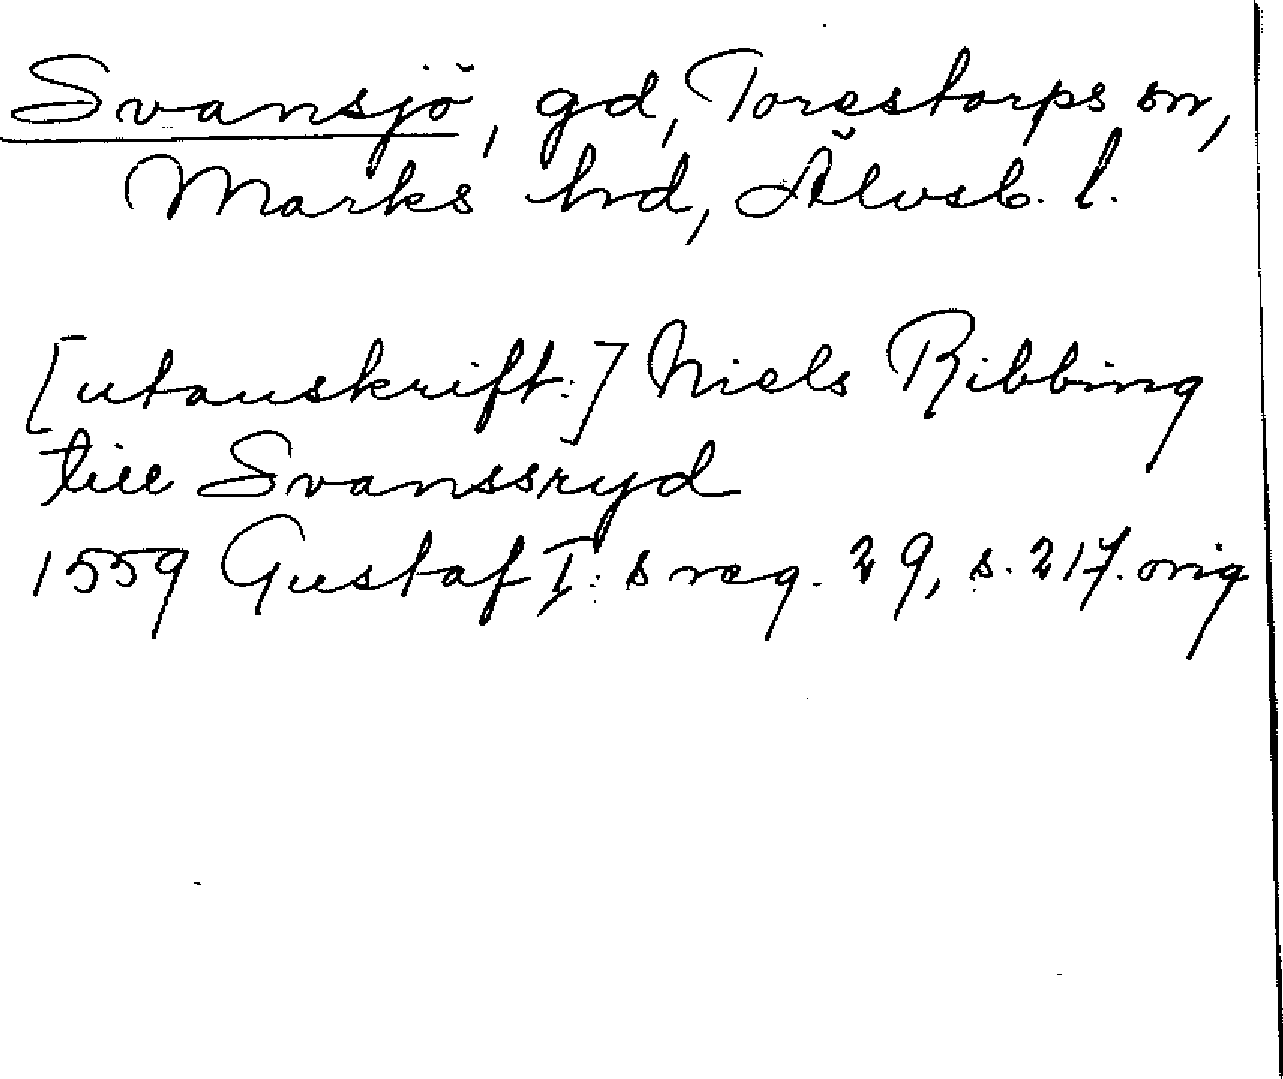 Svansjö, gd, Torestorps sn,
Marks hd, Älvsb. l.
[utanskrift:] Niels Ribbing
till Svanssryd
1559 Gustaf I:s reg. 29, s. 217. orig